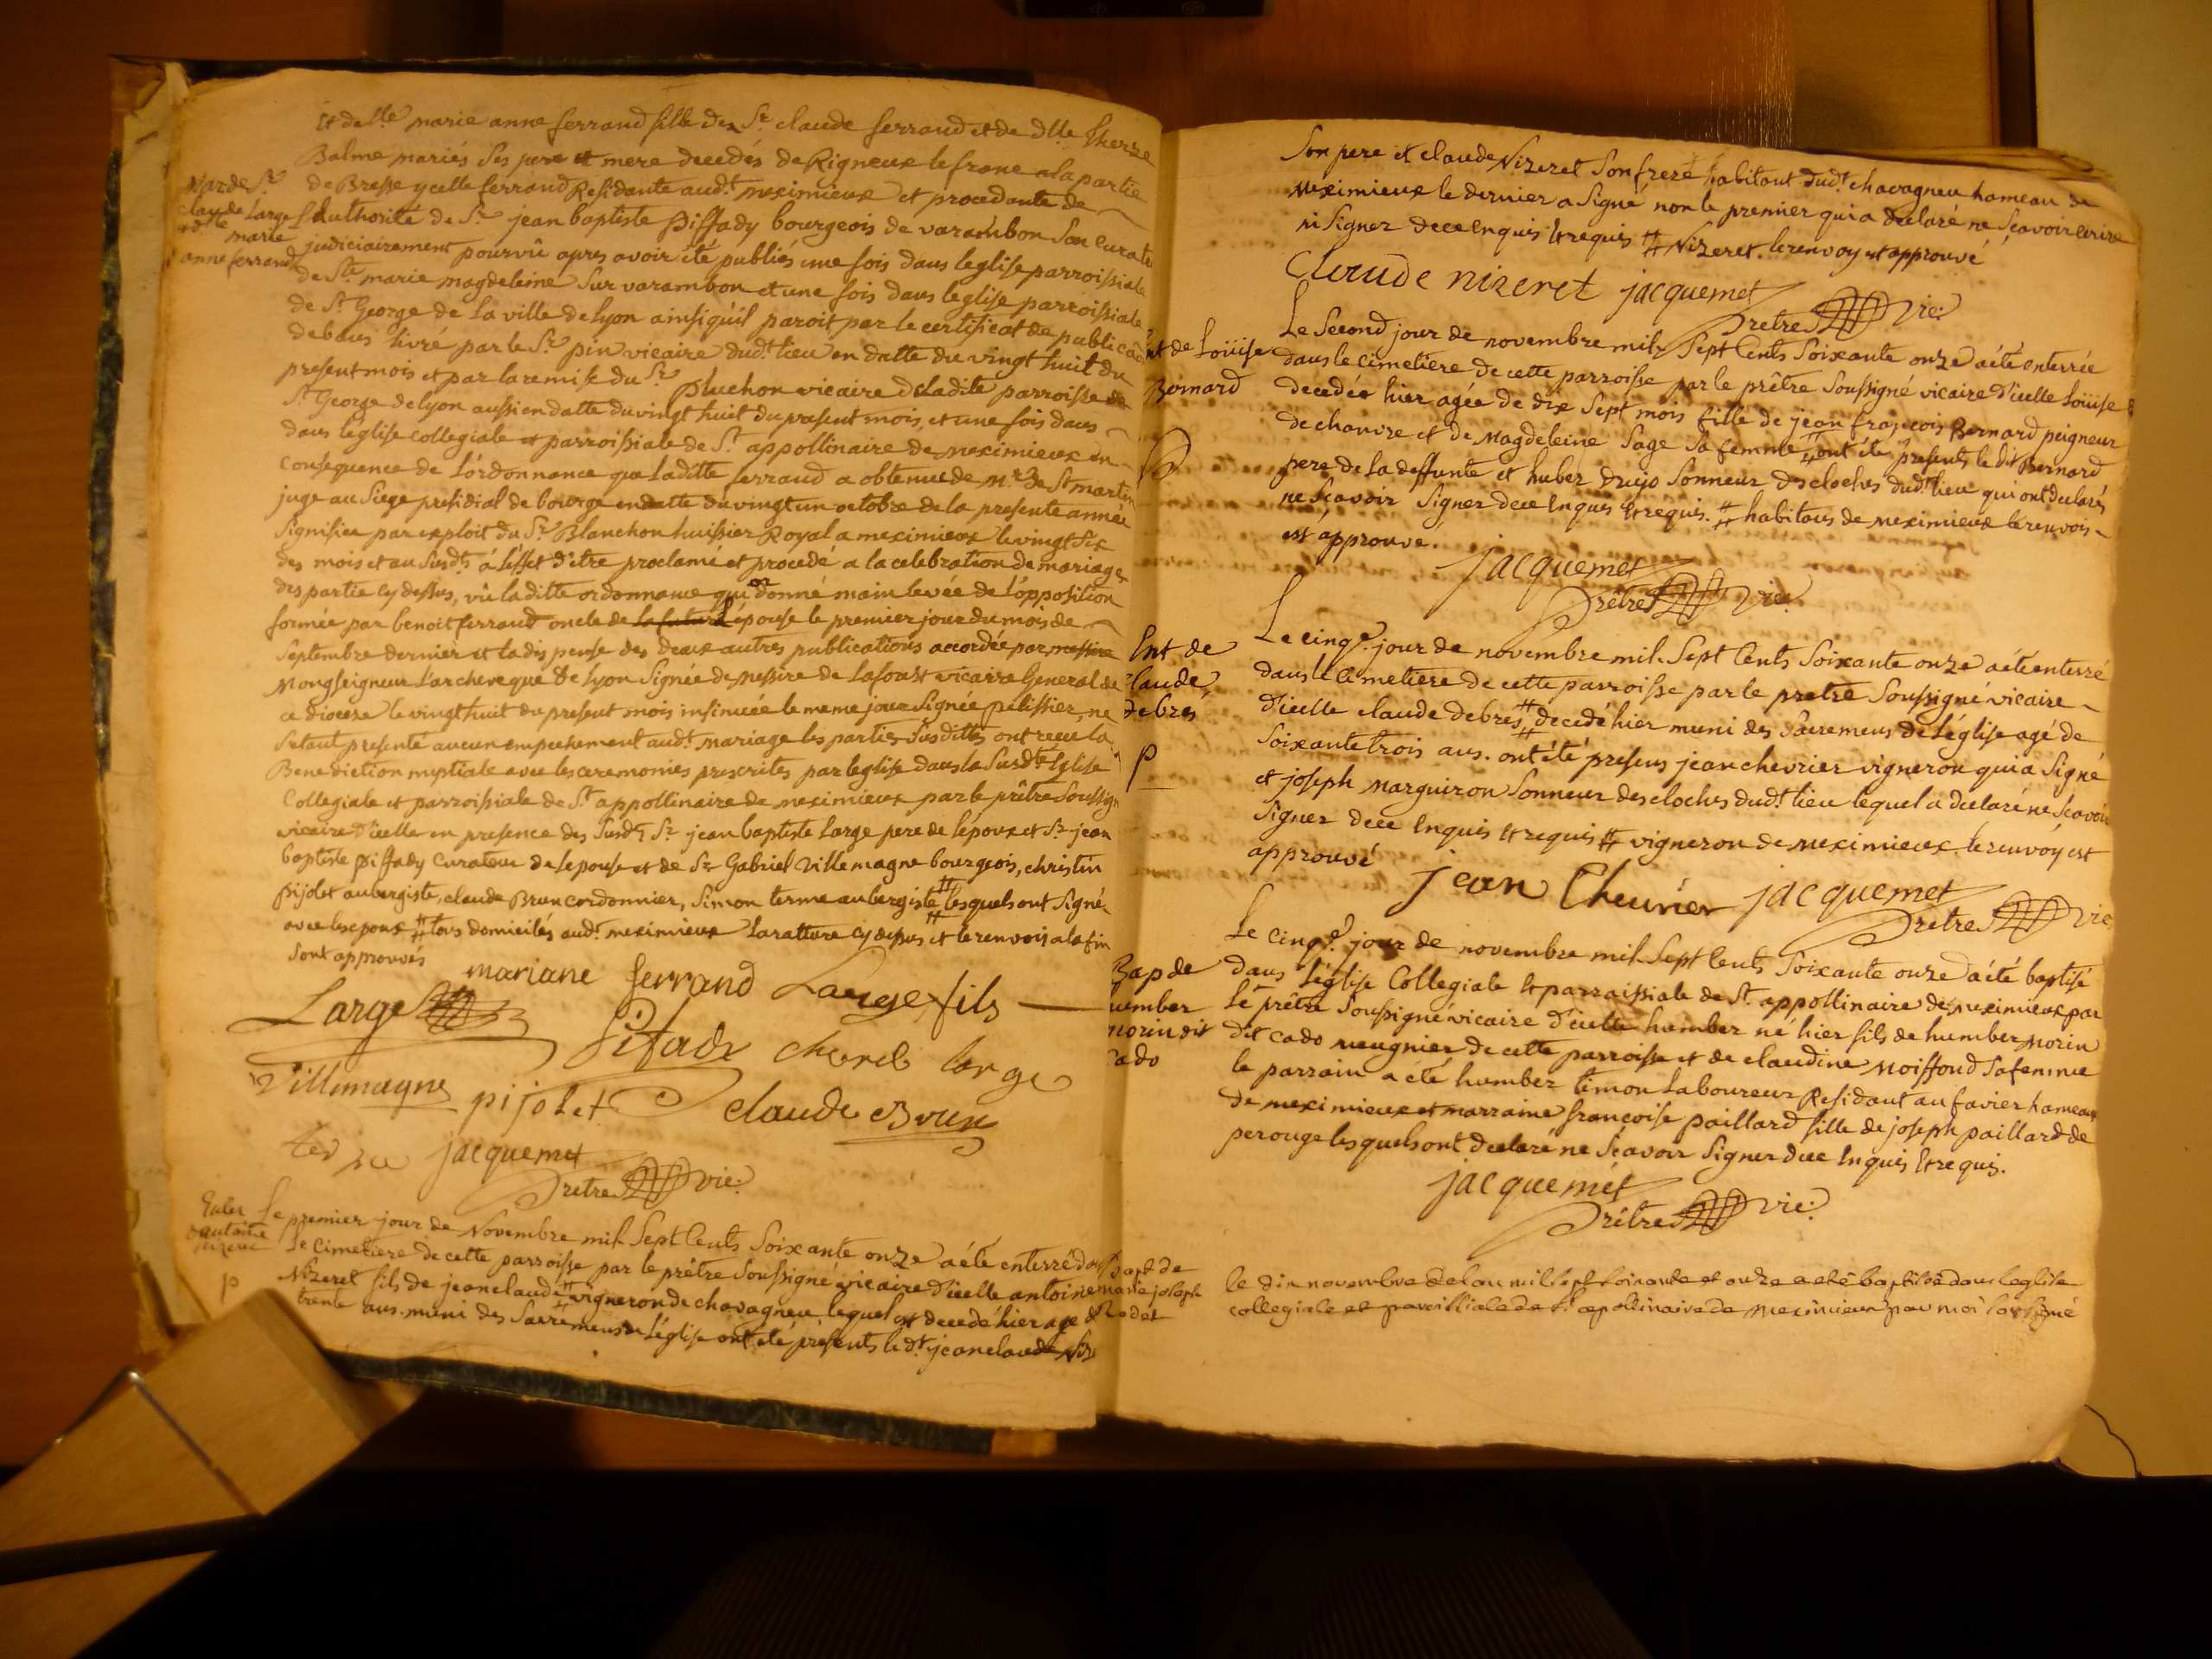 Et de dlle marie anne ferrand fille de Sr claude ferrand et de dlle Therese
Balme mariés Ses pere et mere decedés de Rigneux le franc a la partie
de Bresse ycelle ferrand Residante audt meximieux et procedante de
l'authorité de Sr jean baptiste Piffady bourgeois de varambon Son curateur
judiciairement pourvû apres avoir été publiés une fois dans leglise parroissiale
de Ste marie magdeleine Sur varambon et une fois dans leglise parroissiale
de St George de la ville de lyon ainsiqu'il paroit par le certificat de publication
de bans livré par le Sr pin vicaire dudt lieu en datte du vingt huit du
present mois et par la remise du Sr Pluchon vicaire de ladite parroisse de
St George de lyon aussi en datte du vingt huit du present mois, et une fois dans
dans léglise collegiale et parroissiale de St appollinaire de meximieux en
consequence de l'ordonnance que laditte ferrand a obtenue de Mr de St martin
juge au Siege presidial de bourge en datte du vingt un octobre de la presente année
Signifiée par exploit du Sr Blanchon huissier Royal a meximieux le vingt Six
des mois et an Susdts à l'effet d'etre proclamé et procedé a la celebration de mariage
des partie cy dessus, vû laditte ordonnance qui donné main levée de l'opposition
formée par benoit ferrand oncle de la future l'épouse le premier jour du mois de
Septembre dernier et la dispense des deux autres publications accordée par messire
Mongseigneur l'archeveque de lyon Signée de messire de Lafoust vicaire General de
ce diocese le vingt huit du present mois insinuée le meme jour Signée pelissier, ne
s'etant presenté aucun empechement audt mariage les parties Susdittes ont recu la
Benediction nuptiale avec les ceremonies prescrites par leglise dans la Susdte Eglise
Collegiale et parroissiale de St appollinaire de meximieux par le prêtre Soussigné
vicaire d'icelle en presence des Susdts Sr jean baptiste Large pere de lépoux et Sr jean
baptiste Piffady Curateur de lepouse et de Sr Gabriel villemagne bourgeois, christin
pijolet aubergiste, claude Brun cordonnier, Simon terme aubergiste # lesquels ont Signé
avec les epoux # tous domiciliés audt meximieux La rature cy dessus et le renvois a la fin
Sont approuvés
mariane ferrand Large fils
Large Pifady Large
Villemagne pijolet claude Brun
jacquemet
Prêtre vic:
Mar de Sr
claude Large
et dlle marie
anne ferrand
Le premier jour de Novembre mil Sept Cents Soixante onze a été enterré dans
le Cimetiere de cette parroisse par le prêtre Soussigné vicaire d'icelle antoine
Nizeret fils de jean claude # vigneron de chavagneu lequel est decedé hier age de
trente ans. muni des Sacremens de l'église ont été présents le dt jean claude Nize
Enter
d'antoine
nizeret
p
Son pere et claude Nizeret Son frere habitant dudt chavagneu hameau de
meximieux le dernier a Signé non le premier qui a declaré ne Scavoir ecrire
ni Signer de ce Enquis et requis # Nizeret. le renvoy est approuvé
Claude nizeret jacquemet
Prêtre vic:
nt de Loüise
Bernard
Le Second jour de novembre mil Sept Cents Soixante onze a été enterrée
dans le cimetiere de cette parroisse par le prêtre Soussigné vicaire d'icelle Loüise
decedée hier agée de dix Sept mois fille de jean françois Bernard peigneur
de chanvre et de Magdeleine Sage Sa femme # ont été presents le dit Bernard
pere de la deffunte et huber Sonneur des cloches dudt lieu qui ont declarés
ne Scavoir Signer de ce Enquis et requis. # habitans de meximieux le renvois
est approuvé.
jacquemet
Prêtre vic:
Ent de
claude
debres
p
Le cinqe. jour de novembre mil Sept Cents Soixante onze a été enterré
dans le Cimetiere de cette parroisse par le pretre Soussigné vicaire
d'icelle claude debres # decedé hier muni des Sacremens de l'église agé de
Soixante trois ans. ont été presens jean chevrier vigneron qui a Signé
et joseph Marguiron Sonneur des cloches dudt lieu lequel a declaré ne Scavoir
Signer de ce Enquis et requis # vigneron de meximieux. le renvoy est
approuvé
jean Cheurier jacquemet
Prêtre vic
Bap de
umber
morin dit
cado
Le cinqe. jour de novembre mil Sept Cents Soixante onze a été baptisé
dans l'église Collegiale et parroissiale de St appollinaire de meximieux par
le prêtre Soussigné vicaire d'icelle humber né hier fils de humber Morin
dit cado meugnier de cette parroisse et de claudine Moiffond Sa femme
le parrain a été humber timon Laboureur Residant au favier hameau
de meximieux et marraine françoise paillard fille de joseph paillard de
perouge lesquels ont declaré ne Scavoir Signer de ce Enquis et requis.
jacquemet
Prêtre vic:
Bapt de
marie joseph
Rodet
le dix novembre de lan mil sept soixante et onze a eté baptisée dans leglise
collegiale et paroissiale de St apollinaire de meximieux par moi soussigné